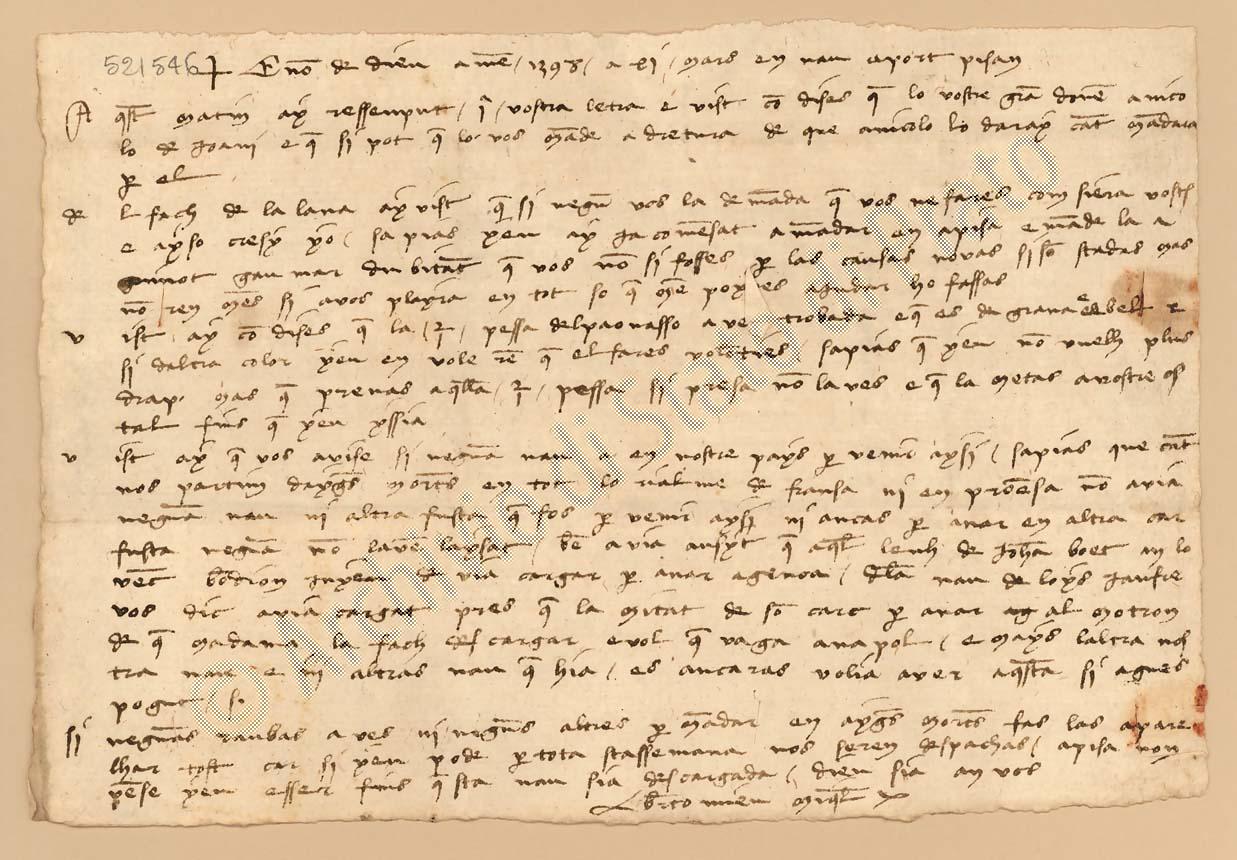 521546
+ E nō de dieu amē / 1398 / a xi / mars en nau aport pisan
A qst matin ay ressenput / iª / vostra letra e vist cō dises q̄ lo vostre grā donē a nico
lo de Joani e q̄ si pot q̄ lo vos māde adretura de que a nicolo lo daray cāt mādara
p̄ el
de l fach de la lana ay vist q̄ si negū vos la demāda q̄ vos ne fares com siera vostra
e ayso cresi yeu / sapias yeu ay ja comēsat a māadar en apisa e māde la a
guinot gaumar dubitāt q̄ vos nō si fosses p̄ las causas novas si sō stadas mas
nō ren mēs si avos playria en tot so q̄ me poyres agudar ho fassas
v ist ay cō dises q̄ la / iª / pessa del paonasso aves trobada e q̄ es de grana e es belle e
si daltra color yeu en vole rē q̄ el fares volōties / sapias q̄ yeu nō vuelh plus
drap mas q̄ prenas aq̄lla / iª / pessa si presa nō laves e q̄ la metas avostre os
tal fins q̄ yeu yssia
v ist ay q̄ vos avise si neguna nau a en nostre pays p̄ venir aysi / sapias que cāt
nos partim dayg̃s mortes en tot lo rialme de fransa ni en proēsa nō avia
neguna nau ni altra fusta q̄ fos p̄ venir aysi ni ancas p̄ anar en altra car
fusta neguna nō lavē laysat / bē avia ausit q̄ aq̄l lenh de Johā boet an lo
de via cargar p̄ anar agenoa / dla nau de loys Jaufre
vos dic avia cargat pres q̄ la mitat de sō carc p̄ anar al motron
de q̄ madama la fach descargar e vol q̄ vaga a napol / e mays laltra nos
tra nau e ni altras nau q̄ hia / es ancaras volia aver aq̄sta si agues
pogut / si
si negunas raubas aves ni neguns altres p̄ mādar en aygs mortes fas las apare
lhar tost car si yeu pode p̄ tota stassemana nos serem despachas / apisa non
pēse yeu esser fins q̄sta nau sia descargada / dieu sia an vos
© Archivio di Stato di Prato